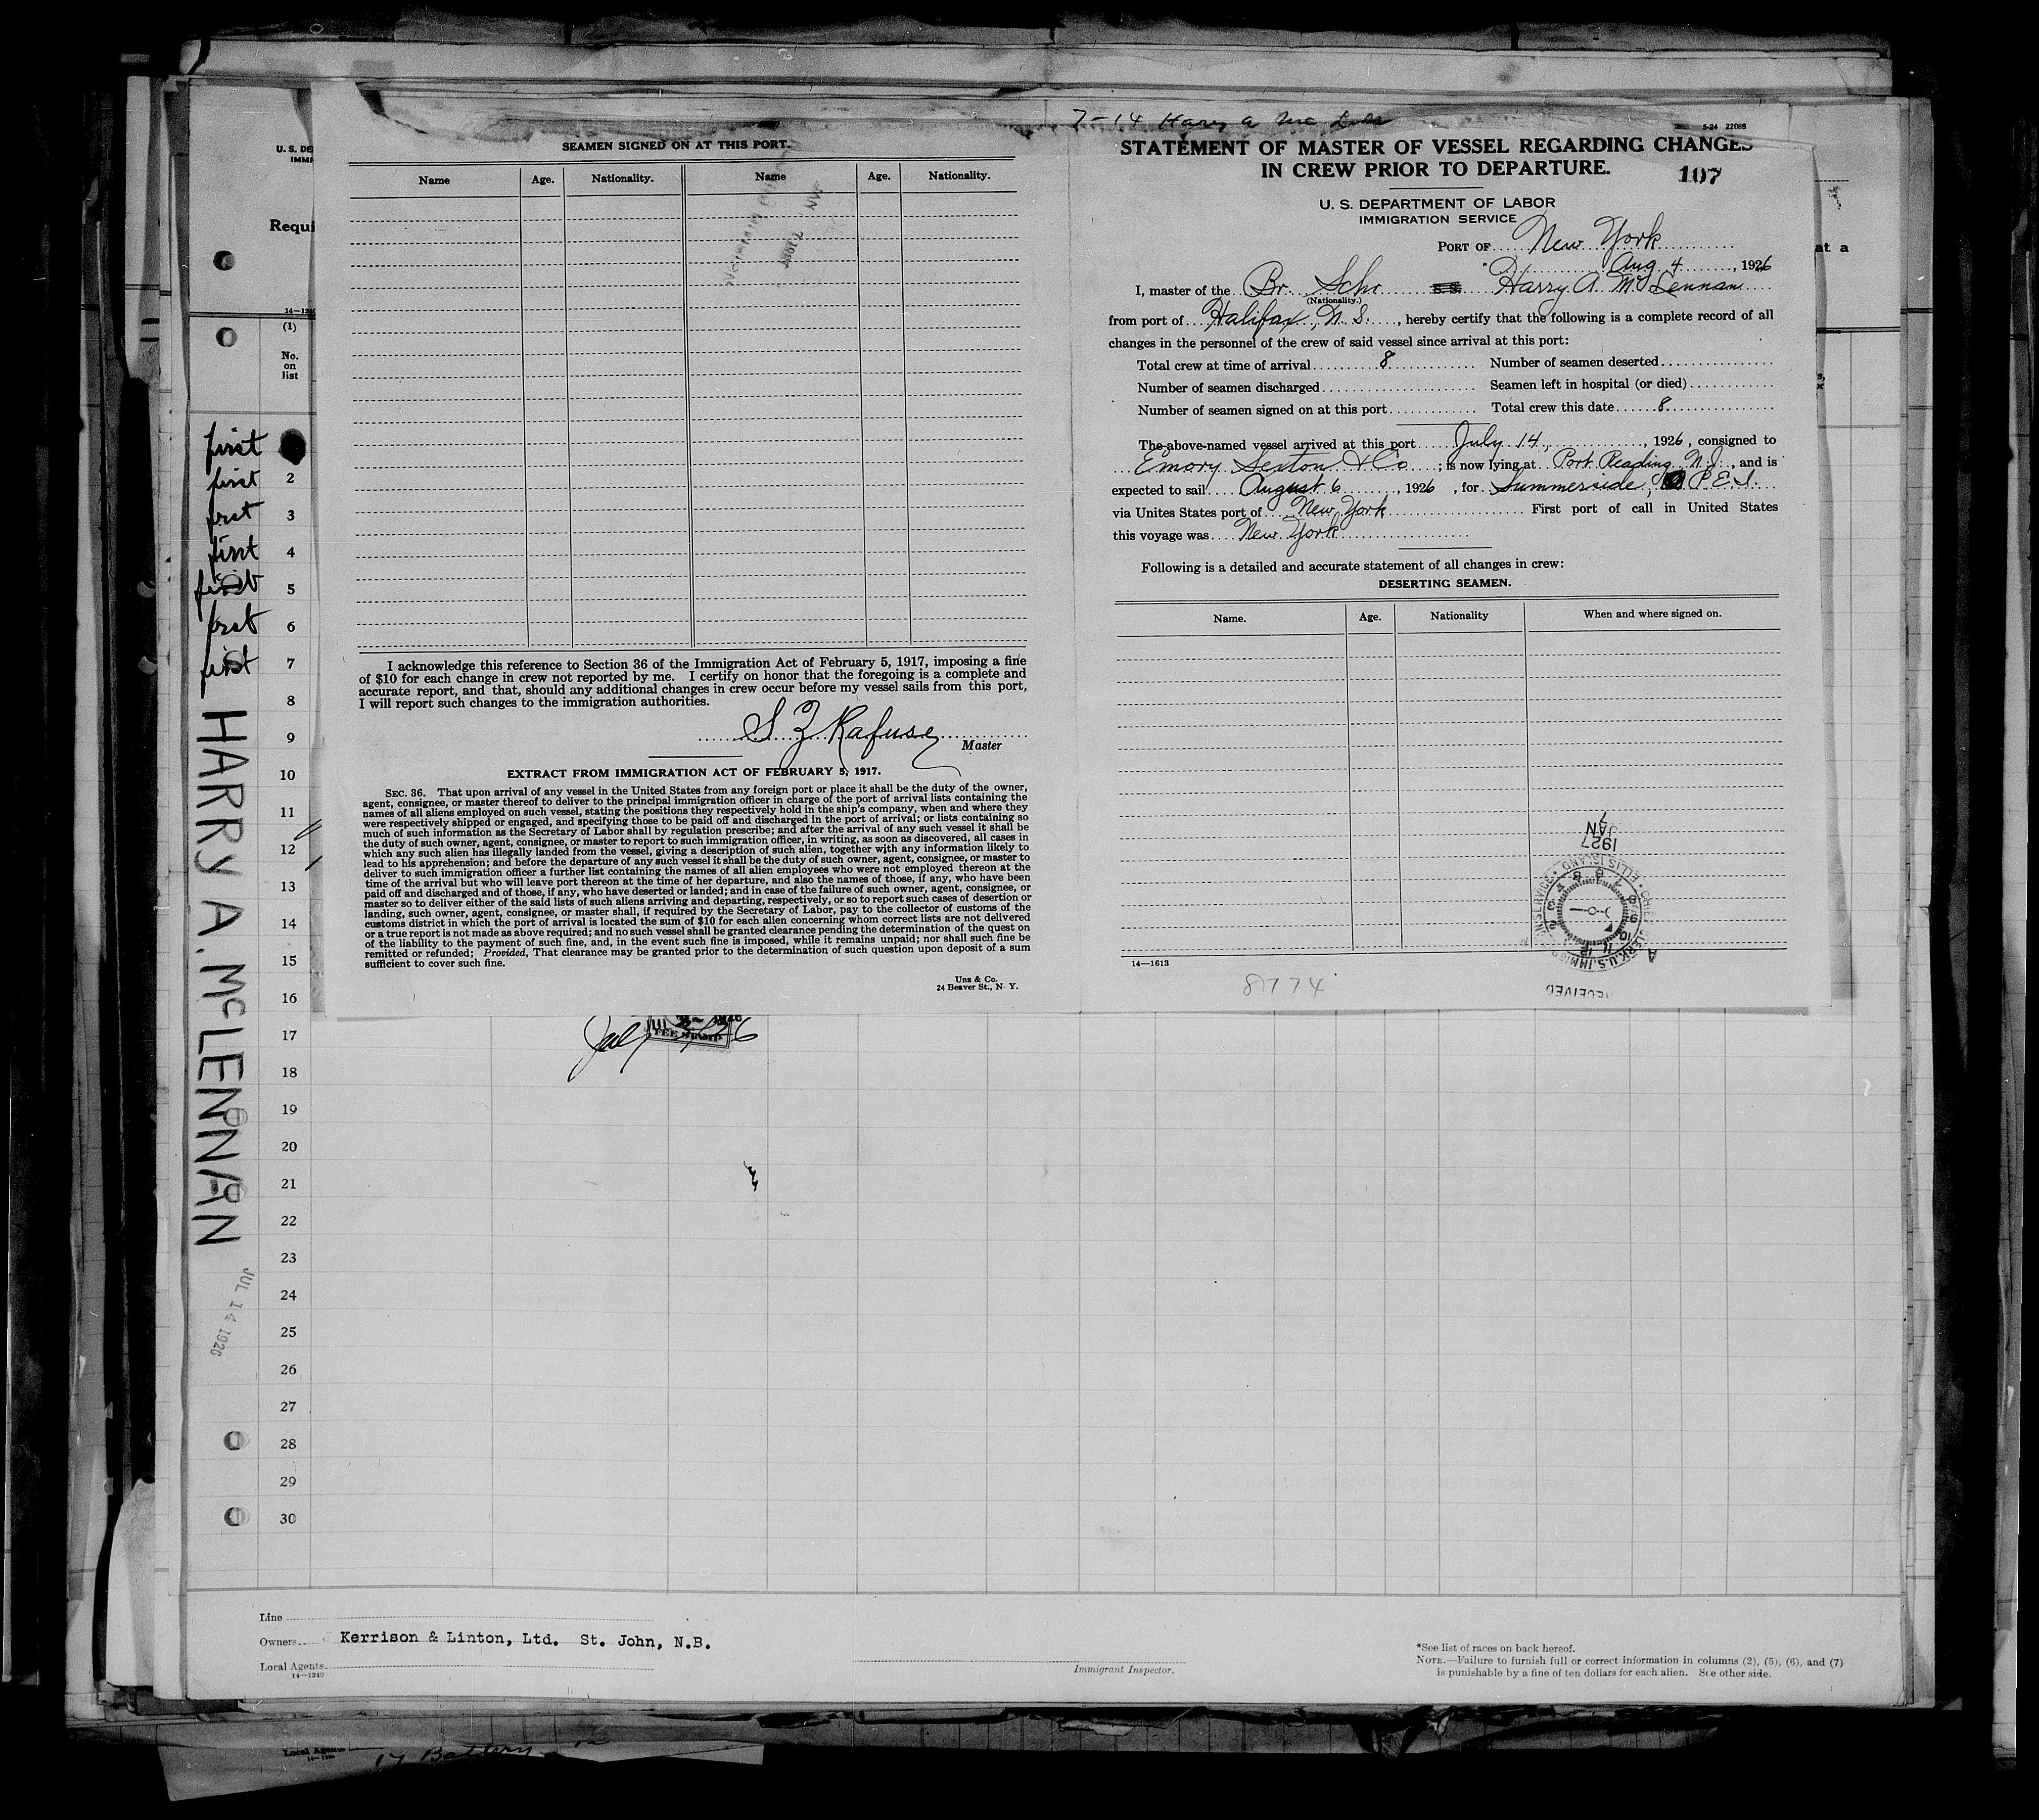 SEAMEN SIGNED ON AT THIS PORT.
Name Age. Nationality. Name Age. Nationality.
I acknowledge this reference to Section 36 of the Immigration Act of February 5, 1917, imposing a fine
of $10 for each change in crew not reported by me. I certify on honor that the foregoing is a complete and
accurate report, and that, should any additional changes in crew occur before my vessel sails from this port,
I will report such changes to the immigration authorities.
S Z Rafuse
Master
EXTRACT FROM IMMIGRATION ACT OF FEBRUARY 5, 1917.
SEC. 36. That upon arrival of any vessel in the United States from any foreign port or place it shall be the duty of the owner,
agent, consignee, or master thereof to deliver to the principal immigration officer in charge of the port of arrival lists containing the
names of all aliens employed on such vessel, stating the positions they respectively hold in the ship's company, when and where they
were respectively shipped or engaged, and specifying those to be paid off and discharged in the port of arrival; or lists containing so
much of such information as the Secretary of Labor shall by regulation prescribe; and after the arrival of any such vessel it shall be
the duty of such owner, agent, consignee, or master to report to such immigration officer, in writing, as soon as discovered, all cases in
which any such alien has illegally landed from the vessel, giving a description of such alien, together with any information likely to
lead to his apprehension; and before the departure of any such vessel it shall be the duty of such owner, agent, consignee, or master to
deliver to such immigration officer a further list containing the names of all alien employees who were not employed thereon at the
time of the arrival but who will leave port thereon at the time of her departure, and also the names of those, if any, who have been
paid off and discharged and of those, if any, who have deserted or landed; and in case of the failure of such owner, agent, consignee, or
master so to deliver either of the said lists of such aliens arriving and departing, respectively, or so to report such cases of desertion or
landing, such owner, agent, consignee, or master shall, if required by the Secretary of Labor, pay to the collector of customs of the
customs district in which the port of arrival is located the sum of $10 for each alien concerning whom correct lists are not delivered
or a true report is not made as above required; and no such vessel shall be granted clearance pending the determination of the quest on
of the liability to the payment of such fine, and, in the event such fine is imposed, while it remains unpaid; nor shall such fine be
remitted or refunded; Provided, That clearance may be granted prior to the determination of such question upon deposit of a sum
sufficient to cover such fine.
Unz & Co.
24 Beaver St., N. Y.
7-14 Harry A Mc
5-24 22086
STATEMENT OF MASTER OF VESSEL REGARDING CHANGES
IN CREW PRIOR TO DEPARTURE.
107
U. S. DEPARTMENT OF LABOR
IMMIGRATION SERVICE
PORT OF New York
Aug 4, 1926
I, master of the Br. Schr S.S. Harry A. McLennan
(Nationality.)
from port of Halifax, N.S., hereby certify that the following is a complete record of all
changes in the personnel of the crew of said vessel since arrival at this port:
Total crew at time of arrival 8 Number of seamen deserted
Number of seamen discharged Seamen left in hospital (or died)
Number of seamen signed on at this port Total crew this date 8
The above-named vessel arrived at this port July 14, 1926, consigned to
Emory Sexton & Co; is now lying at Port Reading N.J., and is
expected to sail August 6, 1926, for Summerside, P.E.I.
via Unites States port of New York First port of call in United States
this voyage was New York
Following is a detailed and accurate statement of all changes in crew:
DESERTING SEAMEN.
Name. Age. Nationality When and where signed on.
1927
JAN
7
CHIEF CLERK, U.S. IMMIG'N SERVICE ELLIS ISLAND
RECEIVED
14—1613
8774
U. S. DE
IMMI
Requi
at a
14—12
(1)
No.
on
list
first
first 2
first 3
first 4
first 5
first 6
first 7
8
9
10
11
12
13
14
15
16
17
18
19
20
21
22
23
24
25
26
27
28
29
30
HARRY A. McLENNAN
JUL 14 1926
Line
Owners Kerrison & Linton, Ltd. St. John, N.B.
Local Agents
14—1240
Immigrant Inspector.
*See list of races on back hereof.
NOTE.—Failure to furnish full or correct information in columns (2), (5), (6), and (7)
is punishable by a fine of ten dollars for each alien. See other side.
Local Agents
17 Battery